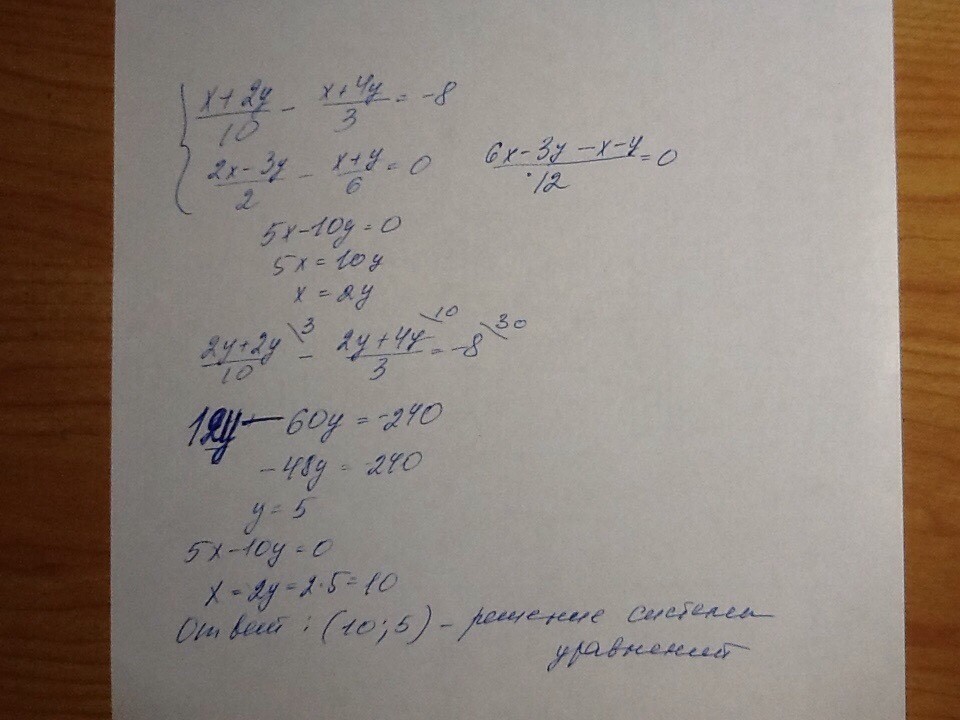 { (x+2y)/10 - (x+4y)/3 = -8
(2x-3y)/2 - (x+y)/6 = 0    (6x-3y-x-y)/12 = 0
5x-10y=0
5x=10y
x=2y
(2y+2y)/10 \3 - (2y+4y)/3 \10 = -8 \30
12y - 60y = -240
-48y = -240
y = 5
5x-10y=0
x=2y=2·5=10
Ответ: (10;5) - решение системы
уравнений